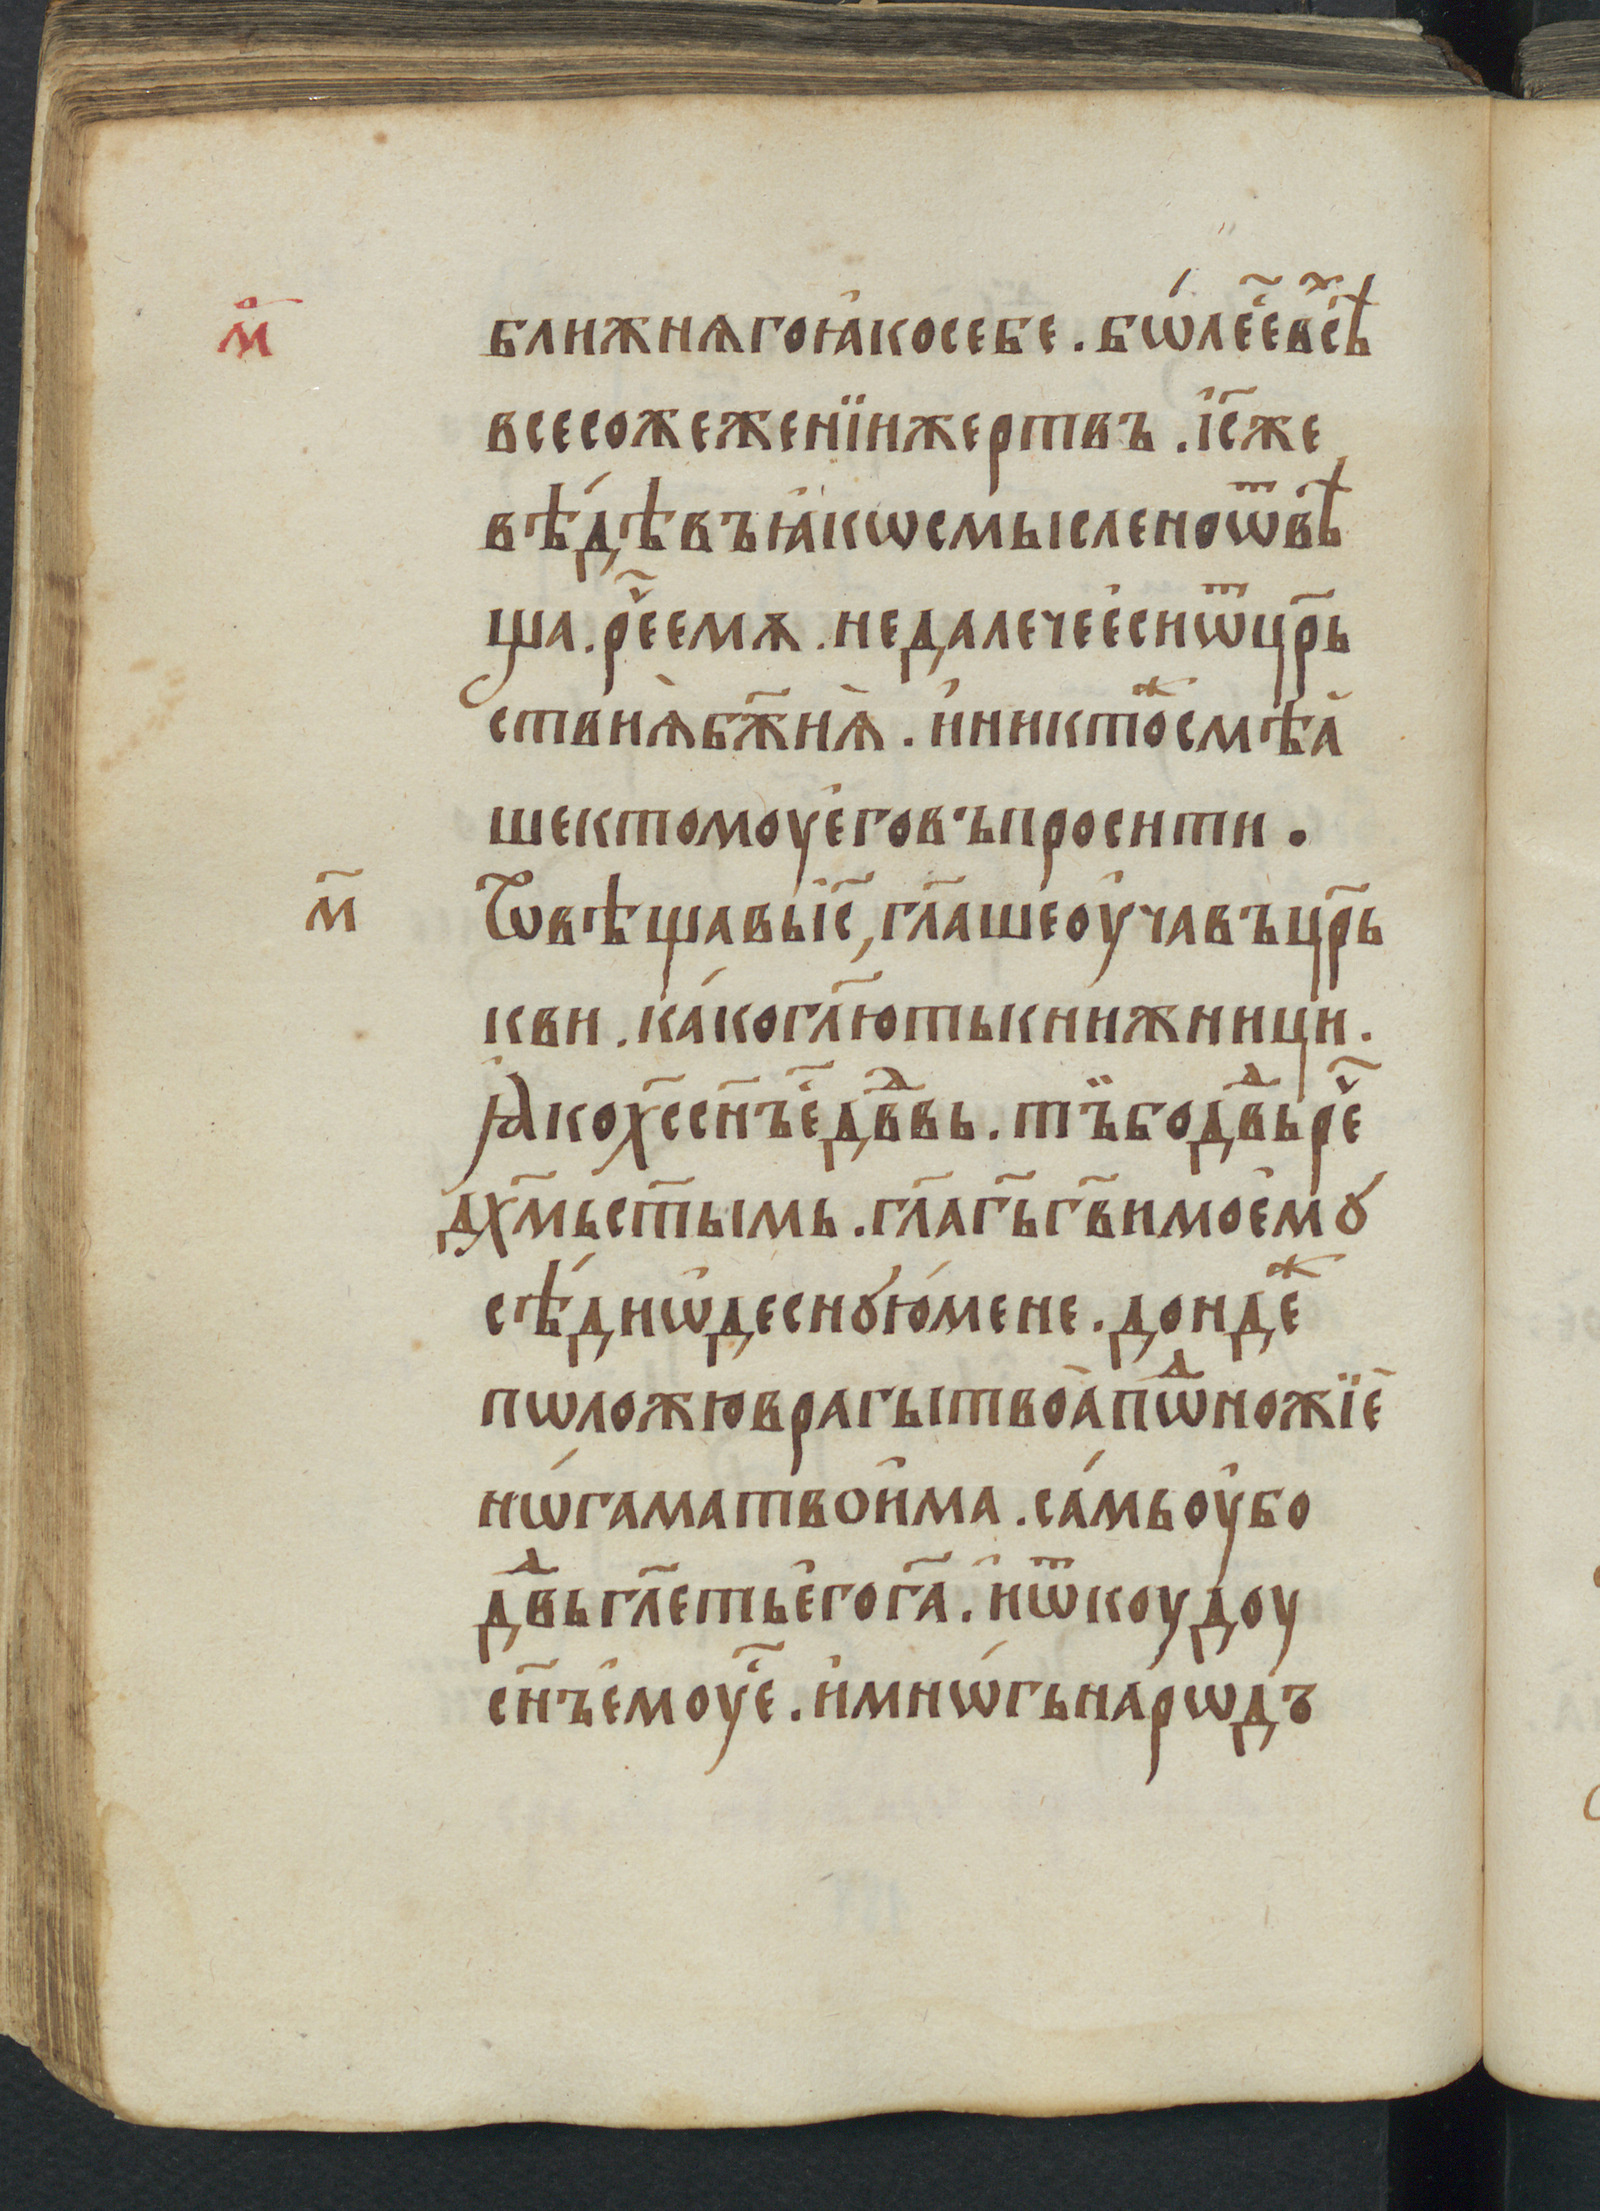 м҃
ближнѧгоꙗ҆косебе . бѡ́лее҆҃вⷯсѣ
всесожеженїнжертвъ . і҆с҃же
вѣ́дѣвъꙗ҆кѡсмысленоѿвѣ
ща . рече҃емѫ . недалечее҆сиѿцр҃ь
ствиꙗ̀бж҃иꙗ̀ . и҆никтоⷤсмѣа҆
шектомоуе҆говъпросити .
м҃
Ѿвѣщавьі҆с҃, гл҃ашеоу҆чавъцр҃ь
кви . ка́когл҃ютькнижници .
Ꙗ҆кох҃ссн҃ъе҆҃дв҃ⷣвь . тъ̈бодв҃ⷣьре҃
дх҃мьст҃ымь . гл҃агь҃гв҃имое҆мꙋ
сѣ́диѡ҆деснꙋю́мене . дондеⷤ
пѡложюврагытвоа҆пѡⷣножїе҆
нѡ́гаматвои҆ма . са́мьоу҆бо
дв҃ⷣьгл҃етье҆гог҃а . и҆ѿкоудоу
сн҃ъе҆моуе҆҃ . и҆мнѡ́гьнаро́дъ